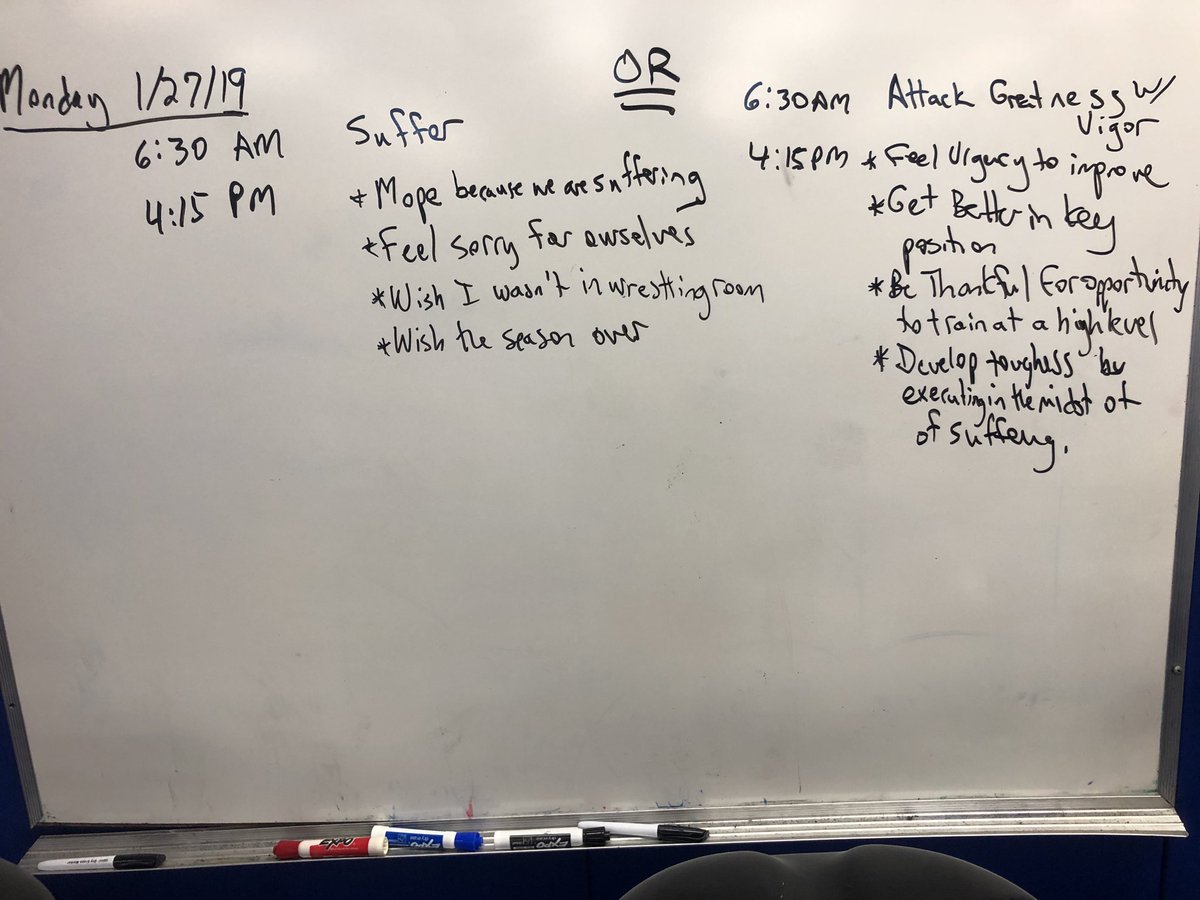 Monday 1/27/19
6:30 AM
4:15 PM
Suffer
* Mope because we are suffering
* Feel sorry for ourselves
* Wish I wasn't in wrestling room
* Wish the season over
OR
6:30AM Attack Greatness w/
Vigor
4:15PM * Feel Urgucy to improve
* Get Better in key
position
* Be Thankful For opportunity
to train at a high level
* Develop toughess by
executing in the midst of
of suffeng.
EXPO
EXPO
EXPO